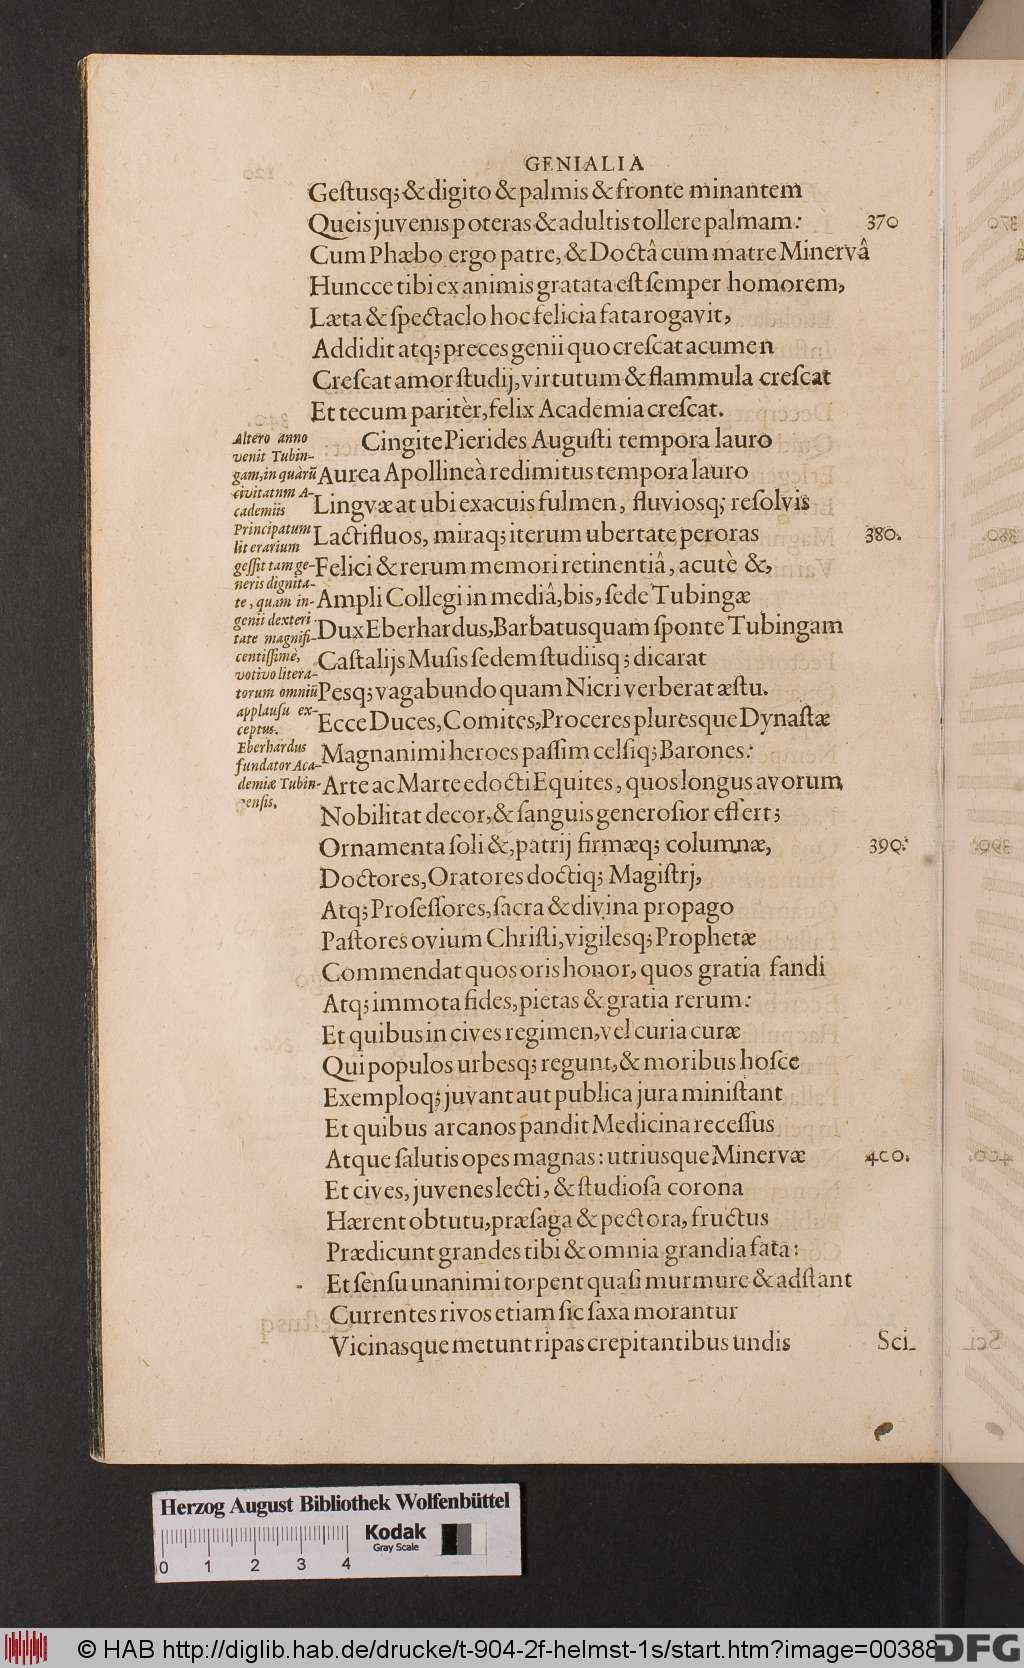 GENIALIA
Geſtusq; & digito & palmis & fronte minantem
Queis juvenis poteras & adultis tollere palmam: 370
Cum Phæbo ergo patre, & Doctâ cum matre Minervâ
Huncce tibi ex animis gratata eſt ſemper homorem,
Læta & ſpectaclo hoc felicia fata rogavit,
Addidit atq; preces genii quo creſcat acumen
Creſcat amor ſtudij, virtutum & flammula creſcat
Et tecum paritèr, felix Academia creſcat.
Cingite Pierides Auguſti tempora lauro
Aurea Apollineà redimitus tempora lauro
Lingvæ at ubi exacuis fulmen, fluviosq; reſolvis
Lactifluos, miraq; iterum ubertate peroras 380.
Felici & rerum memori retinentiâ, acutè &,
Ampli Collegi in mediâ, bis, ſede Tubingæ
Dux Eberhardus, Barbatus quam ſponte Tubingam
Caſtalijs Muſis ſedem ſtudiisq; dicarat
Pesq; vagabundo quam Nicri verberat æſtu.
Ecce Duces, Comites, Proceres pluresque Dynaſtæ
Magnanimi heroes paſſim celſiq; Barones:
Arte ac Marte edocti Equites, quos longus avorum
Nobilitat decor, & ſanguis generoſior effert;
Ornamenta ſoli &, patrij firmæq; columnæ, 390.
Doctores, Oratores doctiq; Magiſtrj,
Atq; Profeſſores, ſacra & divina propago
Paſtores ovium Chriſti, vigilesq; Prophetæ
Commendat quos oris honor, quos gratia fandi
Atq; immota fides, pietas & gratia rerum:
Et quibus in cives regimen, vel curia curæ
Qui populos urbesq; regunt, & moribus hoſce
Exemploq; juvant aut publica jura miniſtant
Et quibus arcanos pandit Medicina receſſus
Atque ſalutis opes magnas: utriusque Minervæ 400.
Et cives, juvenes lecti, & ſtudioſa corona
Hærent obtutu, præſaga & pectora, fructus
Prædicunt grandes tibi & omnia grandia fata:
Et ſenſu unanimi torpent quaſi murmure & adſtant
Currentes rivos etiam ſic ſaxa morantur
Vicinasque metunt ripas crepitantibus undis
Sci-
Altero anno
venit Tubin-
gam, in quarũ
civitatum A-
cademiis
Principatum
literarium
geſſit tam ge-
neris dignita-
te, quam in-
genii dexteri
tate magnifi-
centiſſimè,
votivo litera-
torum omniũ
applauſu ex-
ceptus.
Eberhardus
fundator Aca-
demiæ Tubin-
genſis.
Herzog August Bibliothek Wolfenbüttel
Kodak
Gray Scale
0 1 2 3 4
© HAB http://diglib.hab.de/drucke/t-904-2f-helmst-1s/start.htm?image=00388
DFG